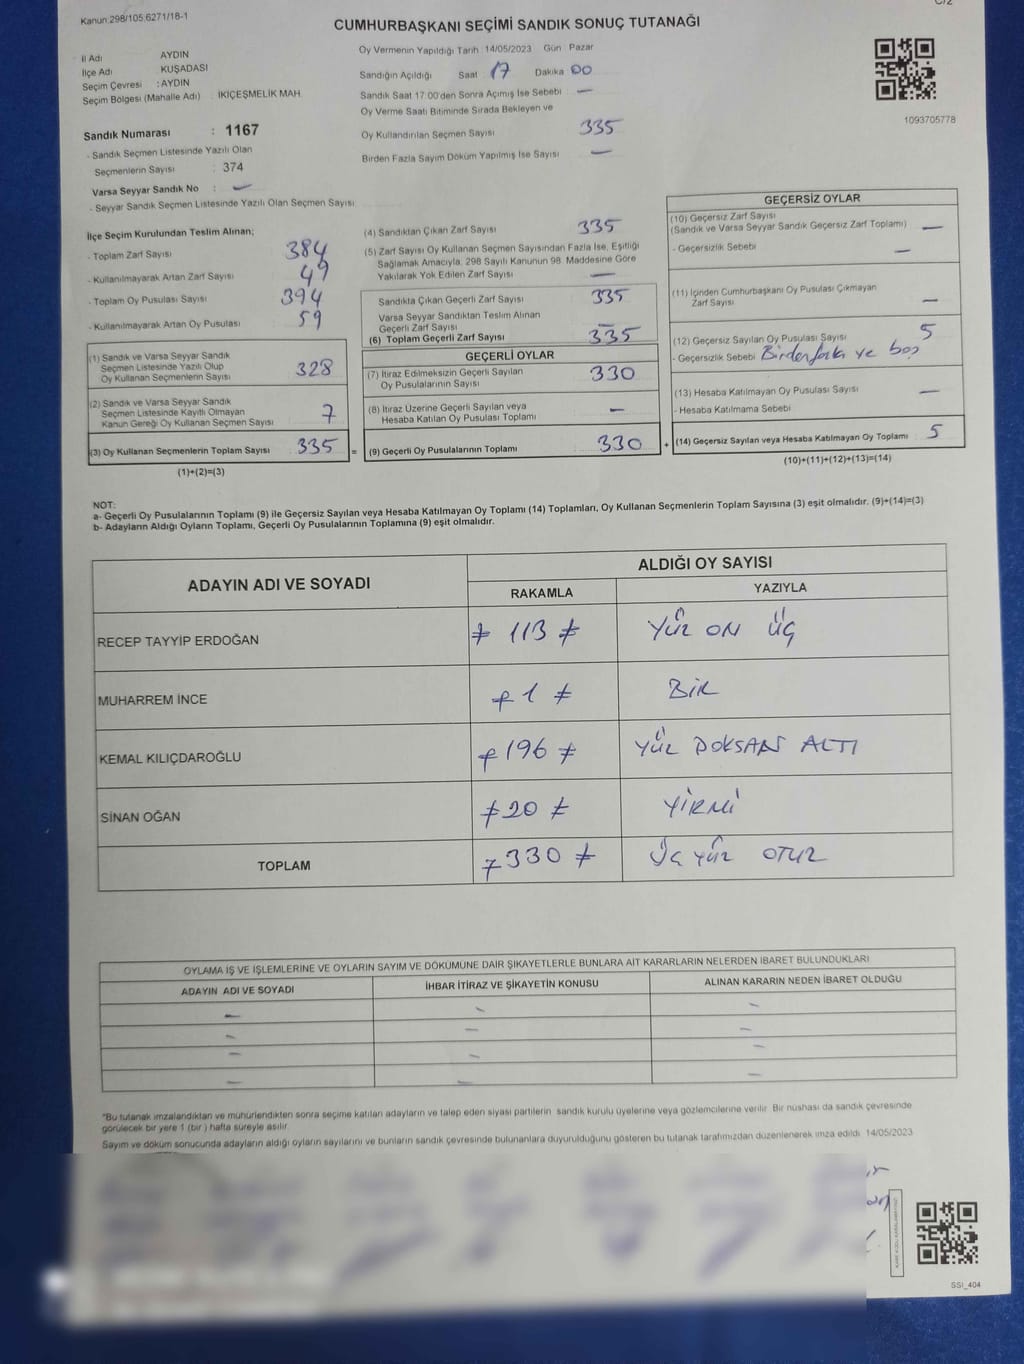 Kanun:298/105,6271/18-1
C/2
CUMHURBAŞKANI SEÇİMİ SANDIK SONUÇ TUTANAĞI
İl Adı AYDIN
İlçe Adı KUŞADASI
Seçim Çevresi : AYDIN
Seçim Bölgesi (Mahalle Adı) : İKİÇEŞMELİK MAH.
Sandık Numarası : 1167
- Sandık Seçmen Listesinde Yazılı Olan
Seçmenlerin Sayısı : 374
Varsa Seyyar Sandık No : —
- Seyyar Sandık Seçmen Listesinde Yazılı Olan Seçmen Sayısı
Oy Vermenin Yapıldığı Tarih 14/05/2023 Gün Pazar
Sandığın Açıldığı Saat 17 Dakika 00
Sandık Saat 17:00'den Sonra Açımış İse Sebebi —
Oy Verme Saati Bitiminde Sırada Bekleyen ve
Oy Kullandırılan Seçmen Sayısı 335
Birden Fazla Sayım Döküm Yapılmış İse Sayısı —
1093705778
İlçe Seçim Kurulundan Teslim Alınan;
- Toplam Zarf Sayısı 384
- Kullanılmayarak Artan Zarf Sayısı 49
- Toplam Oy Pusulası Sayısı 394
- Kullanılmayarak Artan Oy Pusulası 59
(1) Sandık ve Varsa Seyyar Sandık
Seçmen Listesinde Yazılı Olup
Oy Kullanan Seçmenlerin Sayısı 328
(2) Sandık ve Varsa Seyyar Sandık
Seçmen Listesinde Kayıtlı Olmayan
Kanun Gereği Oy Kullanan Seçmen Sayısı 7
(3) Oy Kullanan Seçmenlerin Toplam Sayısı 335 =
(1)+(2)=(3)
(4) Sandıktan Çıkan Zarf Sayısı 335
(5) Zarf Sayısı Oy Kullanan Seçmen Sayısından Fazla İse, Eşitliği
Sağlamak Amacıyla, 298 Sayılı Kanunun 98. Maddesine Göre
Yakılarak Yok Edilen Zarf Sayısı —
Sandıkta Çıkan Geçerli Zarf Sayısı 335
Varsa Seyyar Sandıktan Teslim Alınan
Geçerli Zarf Sayısı —
(6) Toplam Geçerli Zarf Sayısı 335
GEÇERLİ OYLAR
(7) İtiraz Edilmeksizin Geçerli Sayılan
Oy Pusulalarının Sayısı 330
(8) İtiraz Üzerine Geçerli Sayılan veya
Hesaba Katılan Oy Pusulası Toplamı —
(9) Geçerli Oy Pusulalarının Toplamı 330 +
GEÇERSİZ OYLAR
(10) Geçersiz Zarf Sayısı
(Sandık ve Varsa Seyyar Sandık Geçersiz Zarf Toplamı) —
- Geçersizlik Sebebi —
(11) İçinden Cumhurbaşkanı Oy Pusulası Çıkmayan
Zarf Sayısı —
(12) Geçersiz Sayılan Oy Pusulası Sayısı 5
- Geçersizlik Sebebi Birden fazla ve boş
(13) Hesaba Katılmayan Oy Pusulası Sayısı —
- Hesaba Katılmama Sebebi
(14) Geçersiz Sayılan veya Hesaba Katılmayan Oy Toplamı 5
(10)+(11)+(12)+(13)=(14)
NOT:
a- Geçerli Oy Pusulalarının Toplamı (9) ile Geçersiz Sayılan veya Hesaba Katılmayan Oy Toplamı (14) Toplamları, Oy Kullanan Seçmenlerin Toplam Sayısına (3) eşit olmalıdır. (9)+(14)=(3)
b- Adayların Aldığı Oyların Toplamı, Geçerli Oy Pusulalarının Toplamına (9) eşit olmalıdır.
ADAYIN ADI VE SOYADI ALDIĞI OY SAYISI
RAKAMLA YAZIYLA
RECEP TAYYİP ERDOĞAN ≠ 113 ≠ YÜZ ON ÜÇ
MUHARREM İNCE ≠ 1 ≠ BİR
KEMAL KILIÇDAROĞLU ≠ 196 ≠ YÜZ DOKSAN ALTI
SİNAN OĞAN ≠ 20 ≠ YİRMİ
TOPLAM ≠ 330 ≠ ÜÇ YÜZ OTUZ
OYLAMA İŞ VE İŞLEMLERİNE VE OYLARIN SAYIM VE DÖKÜMÜNE DAİR ŞİKAYETLERLE BUNLARA AİT KARARLARIN NELERDEN İBARET BULUNDUKLARI
ADAYIN ADI VE SOYADI İHBAR İTİRAZ VE ŞİKAYETİN KONUSU ALINAN KARARIN NEDEN İBARET OLDUĞU
— — —
— — —
— — —
— — —
*Bu tutanak imzalandıktan ve mühürlendikten sonra seçime katılan adayların ve talep eden siyasi partilerin sandık kurulu üyelerine veya gözlemcilerine verilir. Bir nüshası da sandık çevresinde
görülecek bir yere 1 (bir ) hafta süreyle asılır.
Sayım ve döküm sonucunda adayların aldığı oyların sayılarını ve bunların sandık çevresinde bulunanlara duyurulduğunu gösteren bu tutanak tarafımızdan düzenlenerek imza edildi. 14/05/2023
SSI_404